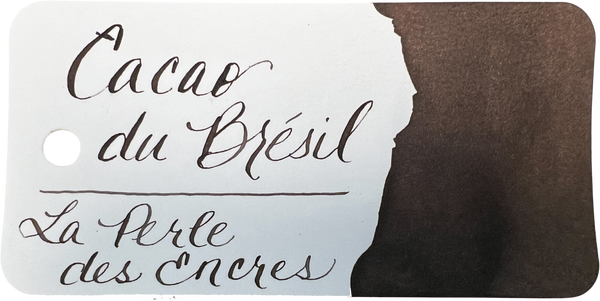 Cacao
du Brésil
La Perle
des Encres